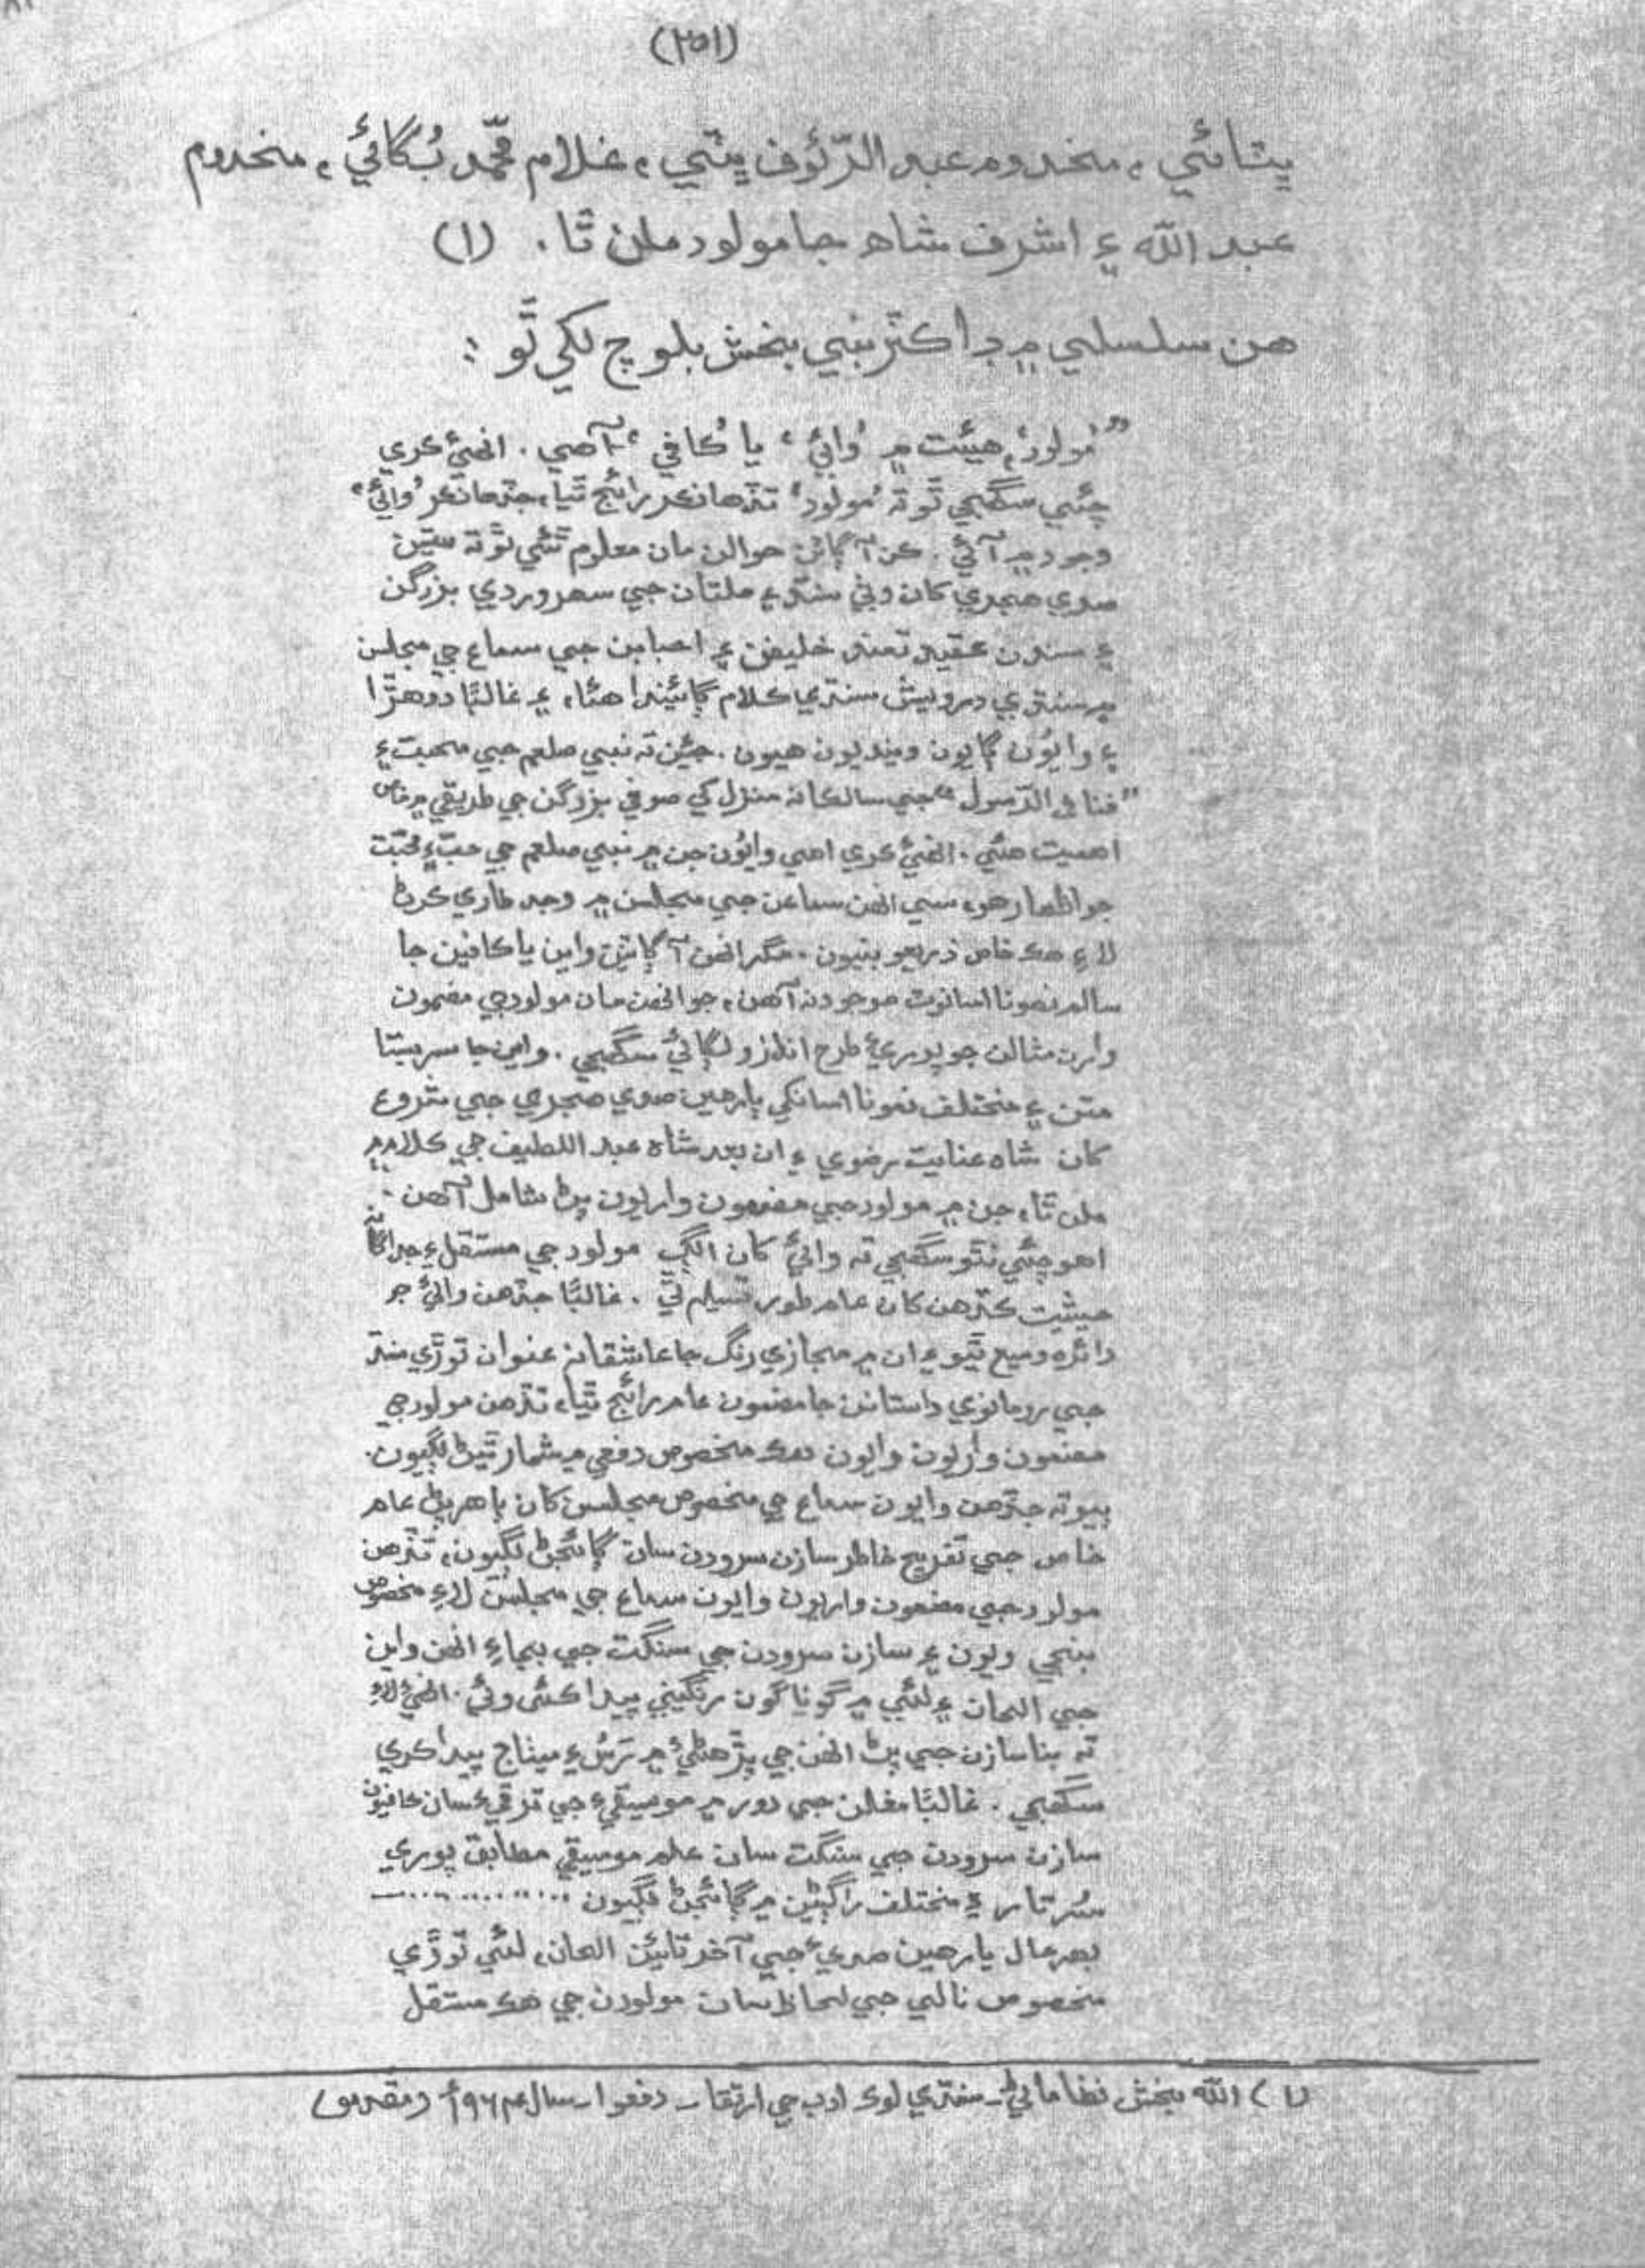 (٢٥١)
ڀٽائي، مخدوم عبد الرّئوف ڀٽي، غلام محمّد ٻُگائي، مخدوم
عبد الله ۽ اشرف شاھ جا مولود ملن ٿا. (١)
هن سلسلي ۾ ڊاڪٽر نبي بخش بلوچ لکي ٿو:
”’مولود‘ هيئت ۾ ’وائي‘ يا ’ڪافي‘ آهي. انهيءَ ڪري
چئي سگهجي ٿو ته ’مولود‘ تڏهانڪر رائج ٿيا، جڏهانڪر ’وائي‘
وجود ۾ آئي. ڪن آڳاٽن حوالن مان معلوم ٿئي ٿو ته ستين
صدي هجري کان وٺي سنڌ ۽ ملتان جي سهروردي بزرگن
۽ سندن عقيدتمند خليفن ۽ احبابن جي سماع جي مجلسن
۾ سنڌي درويش سنڌي ڪلام ڳائيندا هئا، ۽ غالبًا دوهڙا
۽ وايون ڳايون وينديون هيون. جيئن ته نبي صلعم جي محبت ۽
”فنا في الرّسول“ جي سالڪانه منزل کي صوفي بزرگن جي طريقي ۾ خاص
اهميت هئي. انهيءَ ڪري اهي وايون جن ۾ نبي صلعم جي حبّ ۽ محبّت
جو اظهار هو، سي انهن سماعن جي مجلسن ۾ وجد طاري ڪرڻ
لاءِ هڪ خاص ذريعو بنيون. مگر انهن آڳاٽين واين يا ڪافين جا
سالم نمونا اسانوٽ موجود نه آهن، جو انهن مان مولود جي مضمون
وارن مثالن جو پوريءَ طرح اندازو لڳائي سگهجي. واين جا سربستا
متن ۽ مختلف نمونا اسانکي ٻارهين صدي هجري جي شروع
کان شاه عنايت رضوي ۽ ان بعد شاه عبد اللطيف جي ڪلام ۾
ملن ٿا، جن ۾ مولود جي مضمون واريون پڻ شامل آهن.
اهو چئي نٿو سگهجي ته وائيءَ کان الڳ مولود جي مستقل ۽ جداڳاڻه
حيثيت ڪڏهن کان عام طور تسليم ٿي. غالبًا جڏهن وائيءَ جو
دائره وسيع ٿيو ۽ ان ۾ مجازي رنگ جا عاشقانه عنوان توڙي سنڌ
جي رومانوي داستانن جا مضمون عام رائج ٿيا، تڏهن مولود جي
مضمون واريون وايون هڪ مخصوص دفعي ۾ شمار ٿيڻ لڳيون.
ٻيو ته جڏهن وايون سماع جي مخصوص مجلسن کان ٻاهر پڻ عام
خاص جي تفريح خاطر سازن سرودن سان ڳائجڻ لڳيون، تڏهن
مولود جي مضمون واريون وايون سماع جي مجلسن لاءِ مخصوص
بنجي ويون ۽ سازن سرودن جي سنگت جي بجاءِ انهن واين
جي الحان ۽ لئي ۾ گوناگون رنگيني پيدا ڪئي وئي. انهيءَ لاءِ
ته بنا سازن جي پڻ انهن جي پڙهڻيءَ ۾ ترس ۽ ميٺاج پيدا ڪري
سگهجي. غالبًا مغلن جي دور ۾ موسيقيءَ جي ترقيءَ سان ڪافيون
سازن سرودن جي سنگت سان علم موسيقي مطابق پوري
سُر تار ۽ مختلف راڳڻين ۾ ڳائجڻ لڳيون ............
بهرحال يارهين صديءَ جي آخر تائين الحان، لئي توڙي
مخصوص نالي جي لحاظ سان مولودن جي هڪ مستقل
(١) الله بخش نظاماڻي ـ سنڌي لوڪ ادب جي ارتقا ـ دفعو ١ ـ سال ١٩٦٤ع (مقدمو)